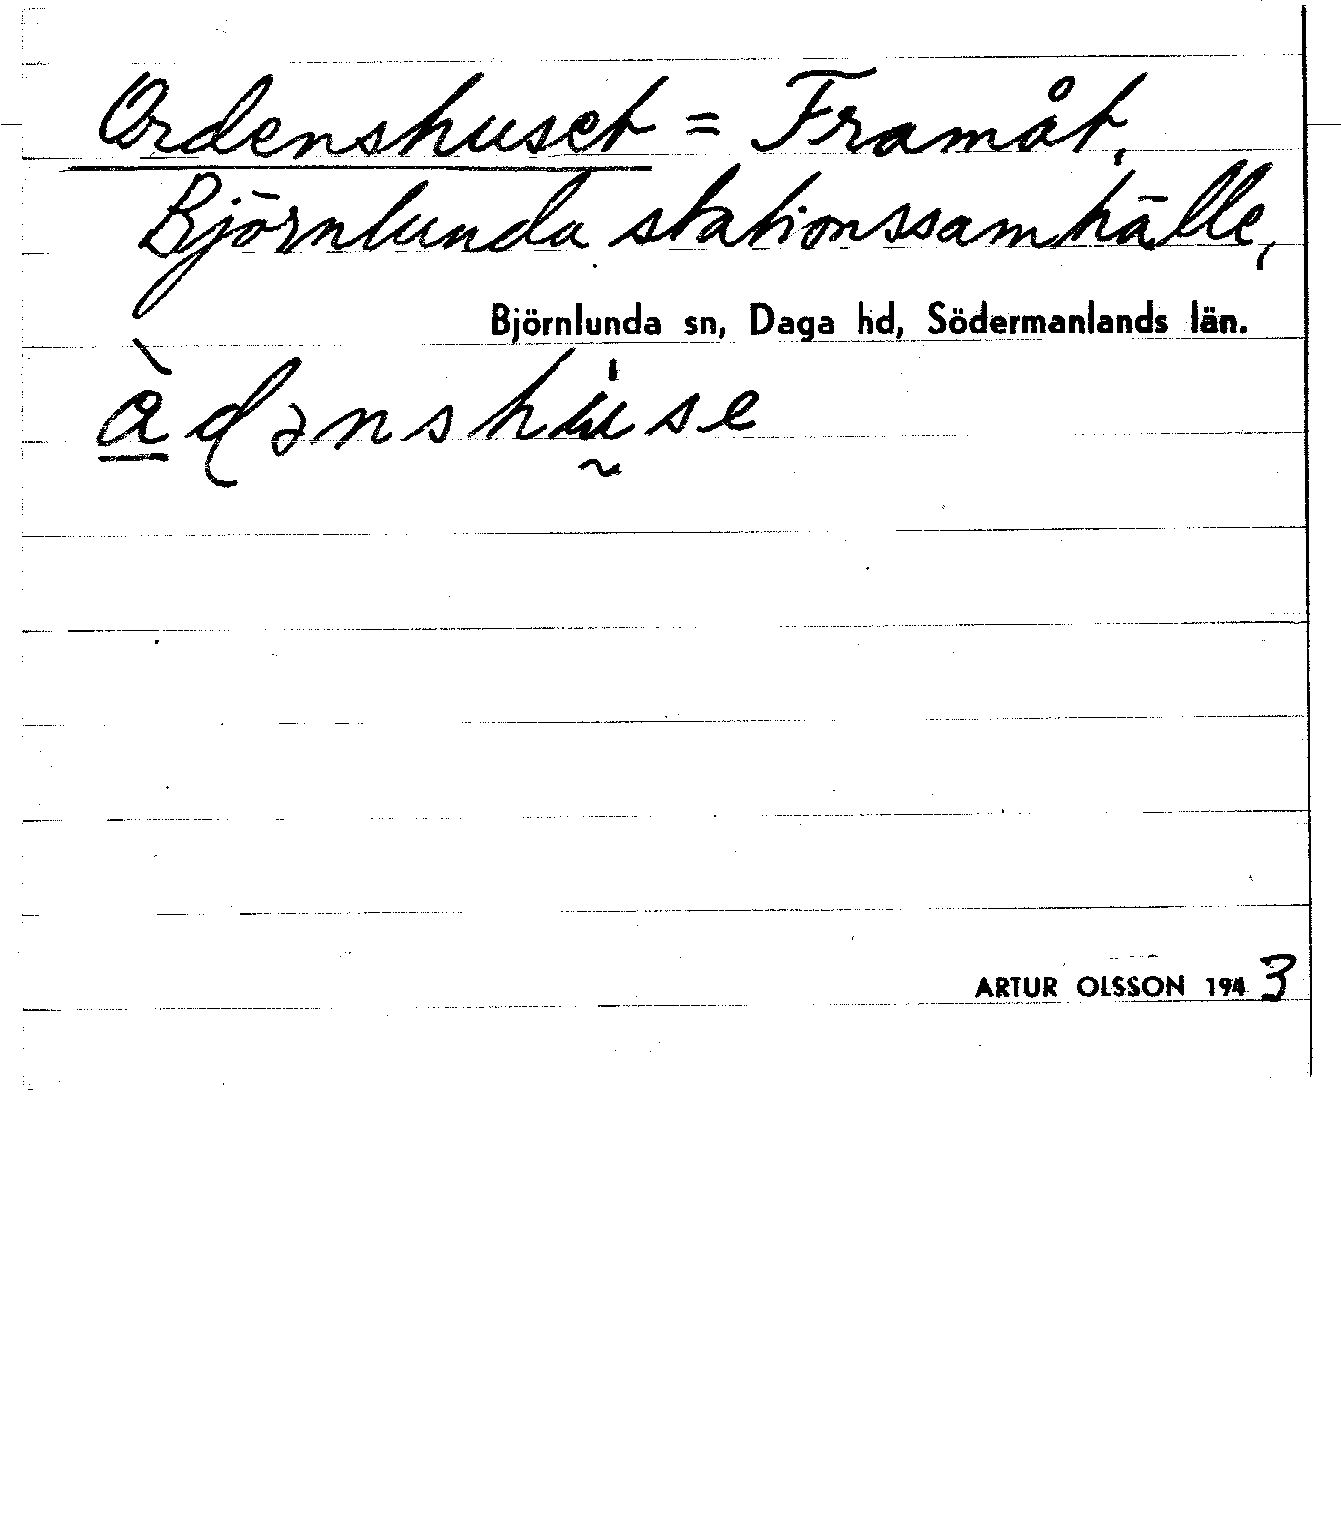 Ordenshuset = Framåt,
Björnlunda stationssamhälle,
Björnlunda sn, Daga hd, Södermanlands län.
å̀dənshṵ̍se
ARTUR OLSSON 1943